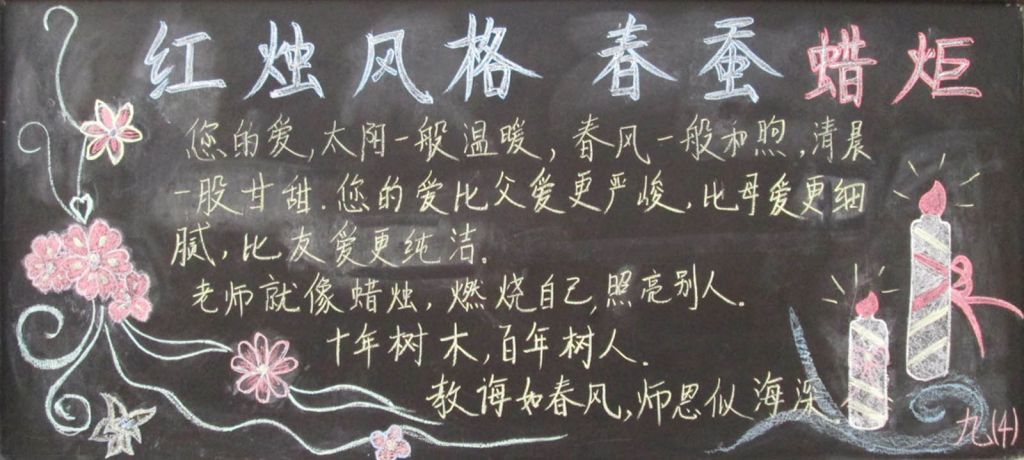 红烛风格 春蚕蜡炬
您的爱,太阳一般温暖,春风一般和煦,清晨
一股甘甜.您的爱比父爱更严峻,比母爱更细
腻,比友爱更纯洁.
老师就像蜡烛,燃烧自己,照亮别人.
十年树木,百年树人.
教诲如春风,师恩似海深
九(4)